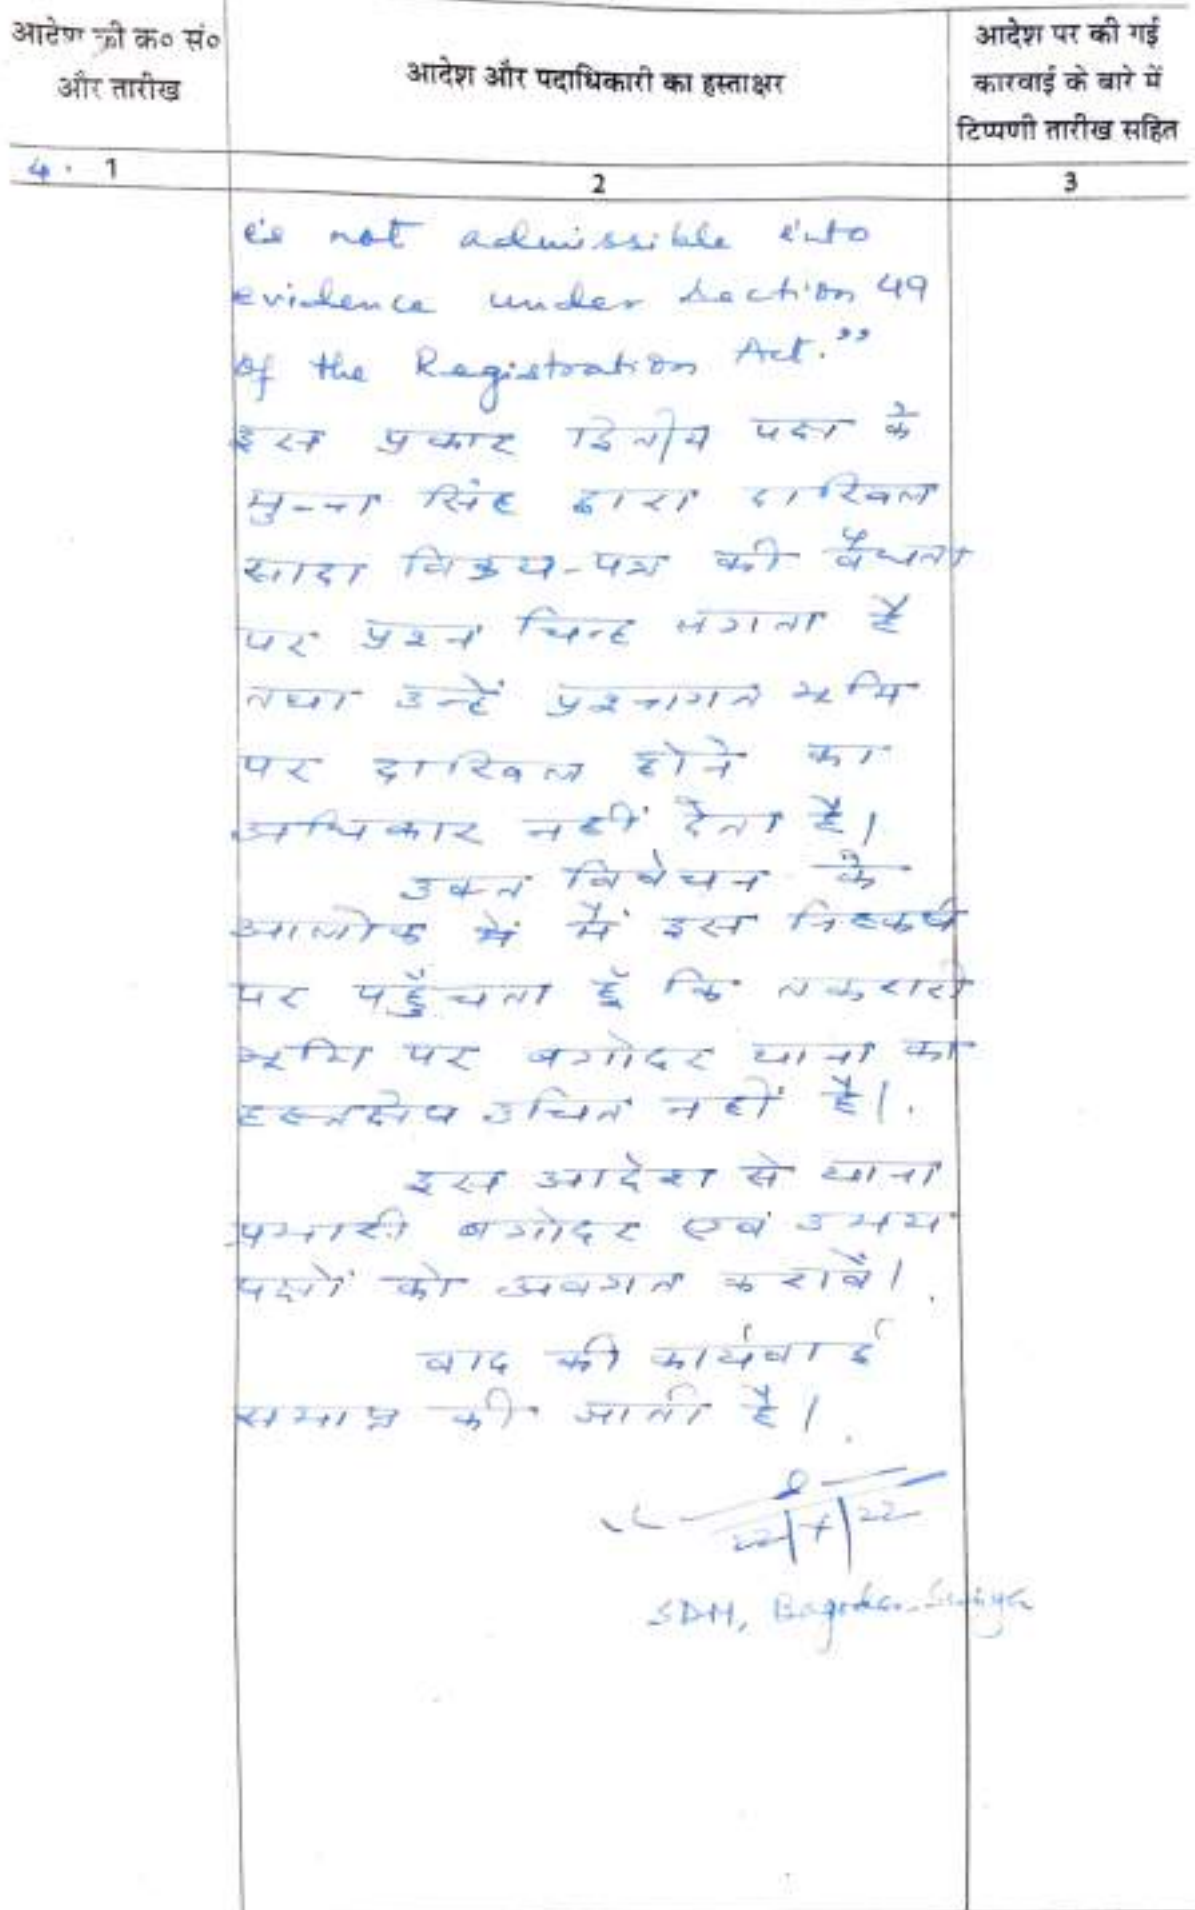 आदेश की क्र० सं०
और तारीख
आदेश और पदाधिकारी का हस्ताक्षर
आदेश पर की गई
कारवाई के बारे में
टिप्पणी तारीख सहित
4. 1
2
3
is not admissible into
evidence under Section 49
of the Registration Act.”
इस प्रकार द्वितीय पक्ष के
मुन्ना सिंह द्वारा दाखिल
सादा विक्रय-पत्र की वैधता
पर प्रश्न चिन्ह लगता है
तथा उन्हें प्रश्नागत भूमि
पर दाखिल होने का
अधिकार नहीं देता है।
उक्त विवेचन के
आलोक में मैं इस निष्कर्ष
पर पहुँचता हूँ कि तकरारी
भूमि पर बगोदर थाना का
हस्तक्षेप उचित नहीं है।
इस आदेश से थाना
प्रभारी बगोदर एवं उभय
पक्षों को अवगत करावें।
वाद की कार्यवाई
समाप्त की जाती है।
SDM, Bagodar-Suriya